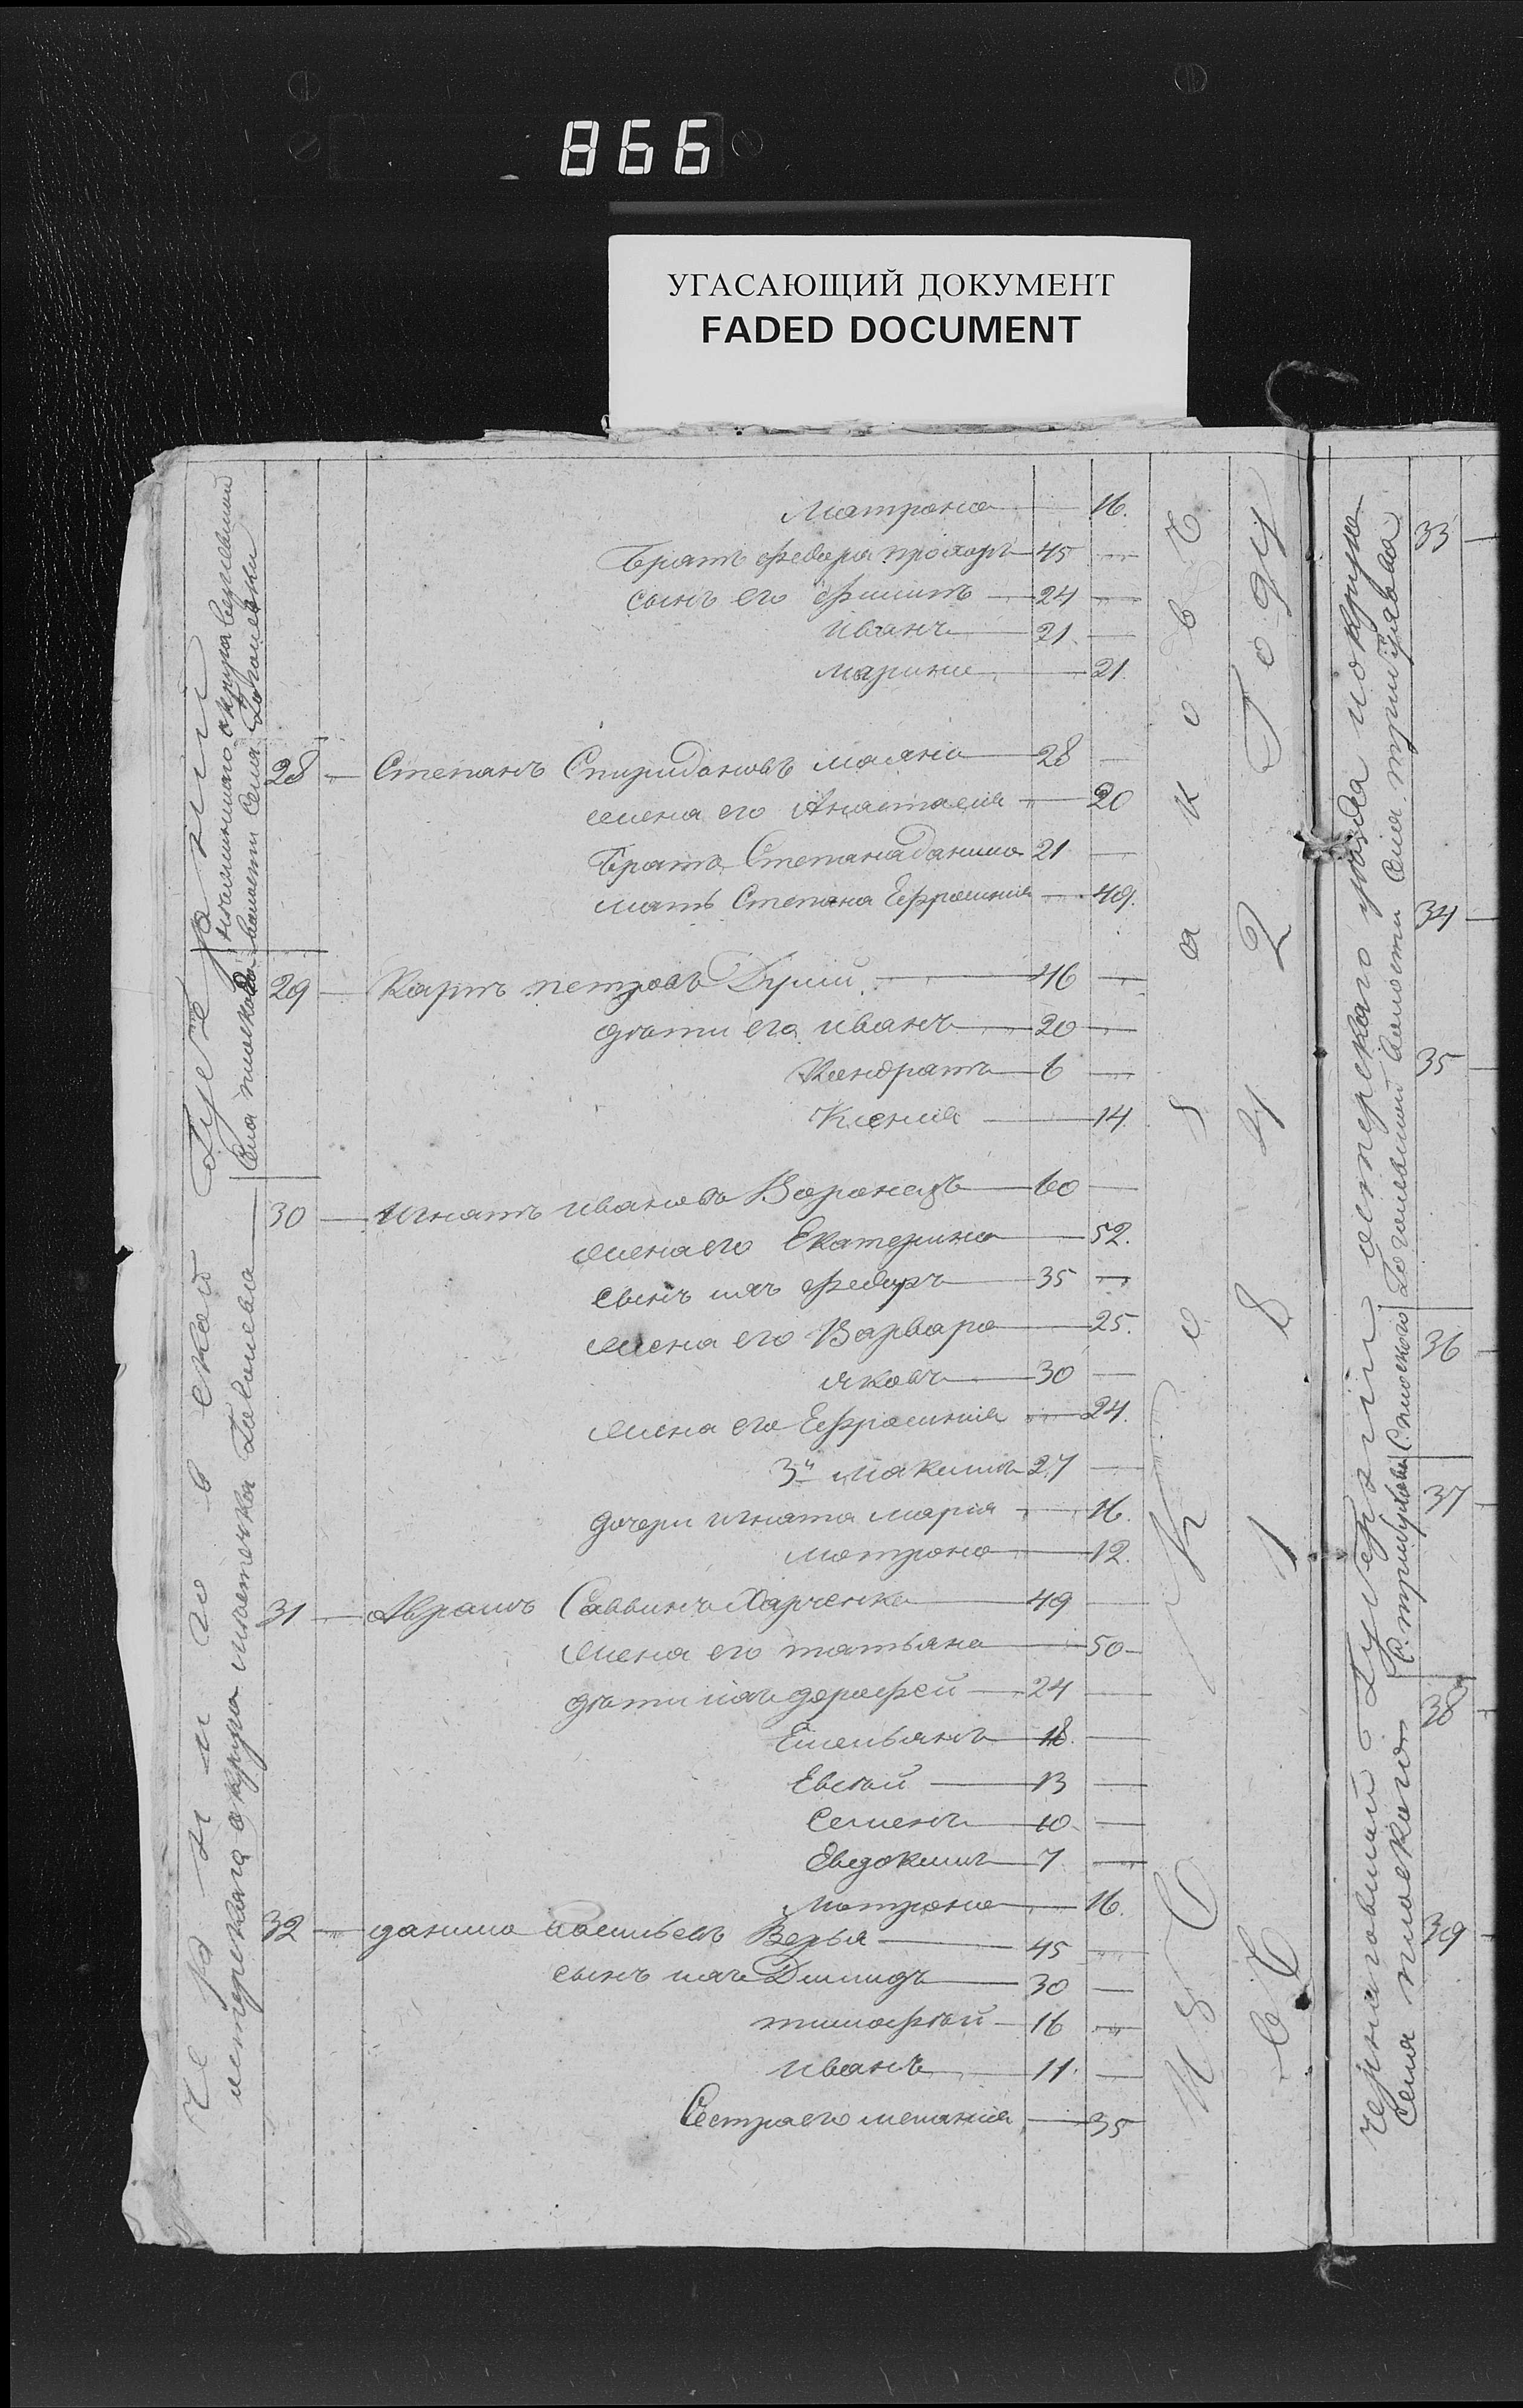 866
УГАСАЮЩИЙ ДОКУМЕНТ
FADED DOCUMENT
Матрона 16.
Братъ Федора прохоръ 45
сынъ его Филипъ 24
иванъ 21
Марина 21.
28 Степанъ Спиридоновъ 28
жена его Анастасия 20
Братъ Степана данила 21
мать Степана Ефросиния 49.
29 Карпъ петровъ 46
дѣти его иванъ 20
Кондратъ 6
Ксения 14
30 Игнатъ ивановъ Воронецъ 60
жена его Екатерина 52.
сынъ ихъ Федоръ 35
жена его Варвара 25.
яковъ 30
жена его Ефросиния 24.
3й Максимъ 27
дочери игната Мария 16.
Матрона 12.
31 Аврамъ Саввинъ Харченко 49
жена его татьяна 50
дѣти ихъ дорофей 24
Емельянъ 18.
Евсѣй 13
Семенъ 10
Евдокимъ 7
Матрона 16.
32 данила васильевъ 45
сынъ ихъ 30
тимофѣй 16
иванъ 11.
Сестра его мелания 35
Черниговской Губернии
остерскаго округа местечка
Изъ Козаковъ
Въ 1842 Году
33
34
35
36
37
38
39
Черниговской Губернии остерского уезда и округа